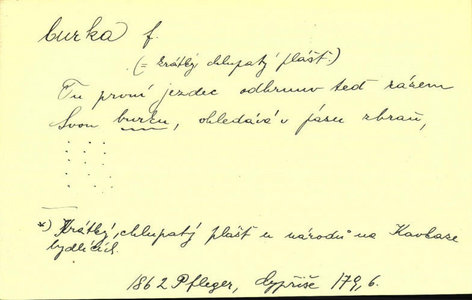 burka f.
(= krátký chlupatý plášť.)
Tu první jezdec odhrnuv teď rázem
Svou burku, ohledává v pásu zbraň,
. . .
. . .
. . .
. . .
*) Krátký, chlupatý plášť u národů na Kavkaze
bydlících.
1862 Pfleger, Cypřiše 179, 6.